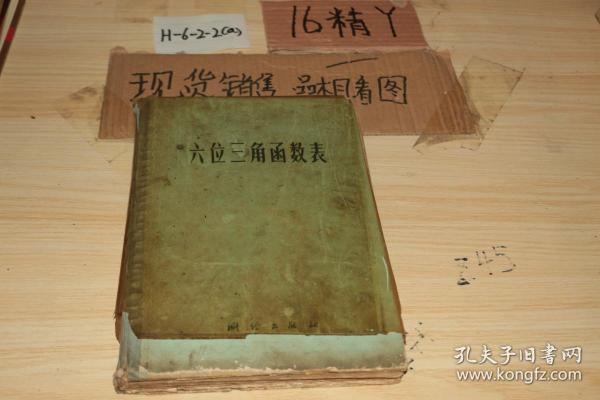 H-6-2-2(a)
16精丫
现货销售 品相看图
六位三角函数表
测绘出版社
245
孔夫子旧书网
www.kongfz.com